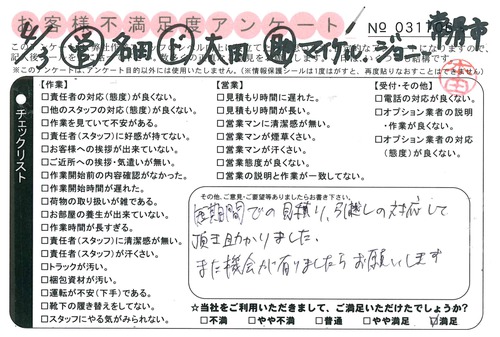 お客様不満足度アンケート
No 0311
常滑市
4/3 営 名田 ド 太田 助 マイケル ジョニー
※このアンケートは、アンケート目的以外には使用いたしません。(※情報保護シールは1度はがすと、再度貼りなおすことはできません)
チェックリスト
【作業】
□責任者の対応(態度)が良くない。
□他のスタッフの対応(態度)が良くない。
□作業を見ていて不安がある。
□責任者(スタッフ)に好感が持てない。
□お客様への挨拶が出来ていない。
□ご近所への挨拶・気遣いが無い。
□作業開始前の内容確認がなかった。
□作業開始時間が遅れた。
□荷物の取り扱いが雑である。
□お部屋の養生が出来ていない。
□作業時間が長すぎる。
□責任者(スタッフ)に清潔感が無い。
□責任者(スタッフ)が汗くさい。
□トラックが汚い。
□梱包資材が汚い。
□運転が不安(下手)である。
□靴下の履き替えをしてない。
□スタッフにやる気がみられない。
【営業】
□見積もり時間に遅れた。
□見積もり時間が長い。
□営業マンに清潔感が無い。
□営業マンが煙草くさい。
□営業マンが汗くさい。
□営業態度が良くない。
□営業の説明と作業が一致してない。
【受付・その他】
□電話の対応が良くない。
□オプション業者の説明
・作業が良くない。
□オプション業者の対応
(態度)が良くない。
その他、ご意見・ご要望等ありましたらお書き下さい。
短期間での見積り、引越しの対応して
頂き助かりました。
また機会が有りましたらお願いします
☆当社をご利用いただきまして、ご満足いただけたでしょうか?
□不満 □やや不満 □普通 □やや満足 ☑満足